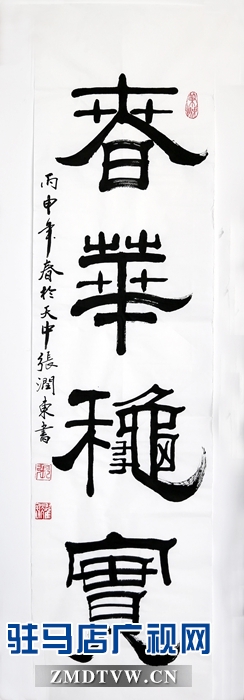 春華龝實
丙申年春於天中張潤東書
驻马店广视网
ZMDTVW.CN